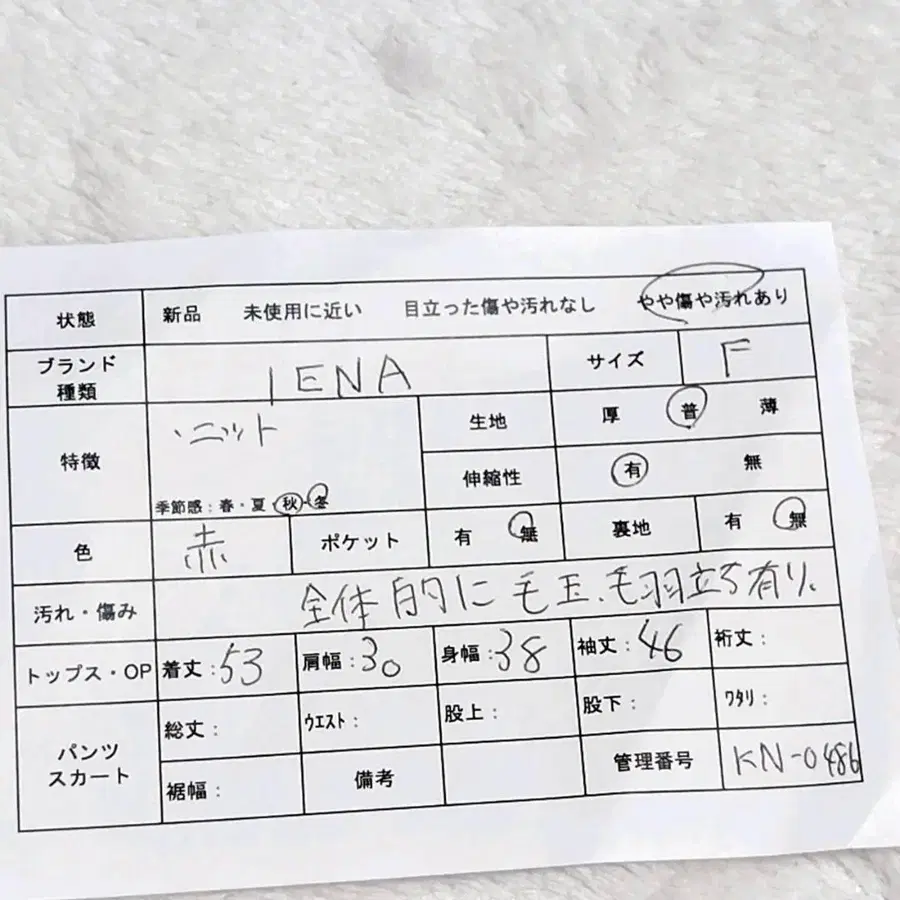 状態 新品 未使用に近い 目立った傷や汚れなし やや傷や汚れあり
ブランド 種類 IENA サイズ F
特徴 ・ニット 生地 厚 普 薄
伸縮性 有 無
季節感：春・夏・秋・冬
色 赤 ポケット 有 無 裏地 有 無
汚れ・傷み 全体的に毛玉、毛羽立ち有り。
トップス・OP 着丈：53 肩幅：30 身幅：38 袖丈：46 裄丈：
パンツ スカート 総丈： ウエスト： 股上： 股下： ワタリ：
裾幅： 備考 管理番号 KN-0486